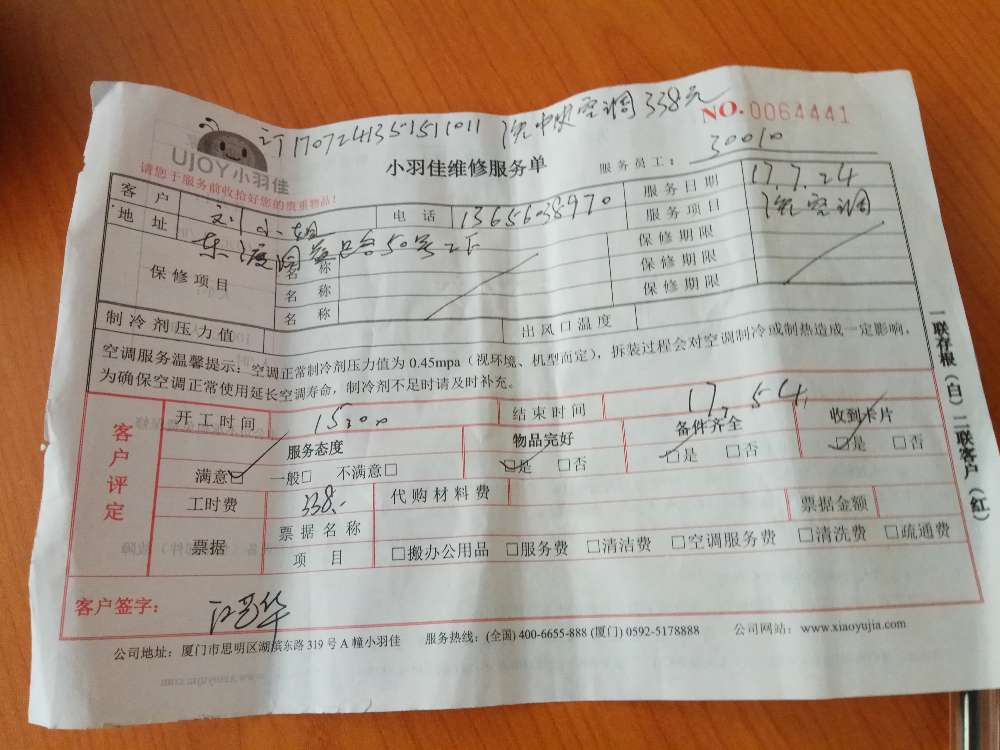 订170724135151011 洗中央空调338元
NO.0064441
UJOY小羽佳
小羽佳维修服务单
服务员工: 30010
请您于服务前收拾好您的贵重物品!
客户 刘小姐 电话 13656038970 服务日期 17.7.24
地址 50号 服务项目 洗空调
保修项目 名称 保修期限
名称 保修期限
名称 保修期限
制冷剂压力值 出风口温度
空调服务温馨提示: 空调正常制冷剂压力值为 0.45mpa (视环境、机型而定), 拆装过程会对空调制冷或制热造成一定影响,
为确保空调正常使用延长空调寿命, 制冷剂不足时请及时补充。
客户评定
开工时间 15:00 结束时间 17:54
服务态度 物品完好 备件齐全 收到卡片
满意□ 一般□ 不满意□ □是 □否 □是 □否 □是 □否
工时费 338.- 代购材料费 票据金额
票据 票据名称
项目 □搬办公用品 □服务费 □清洁费 □空调服务费 □清洗费 □疏通费
客户签字:
公司地址: 厦门市思明区湖滨东路 319 号 A 幢小羽佳 服务热线: (全国) 400-6655-888 (厦门) 0592-5178888 公司网站: www.xiaoyujia.com
一联存根(白)二联客户(红)